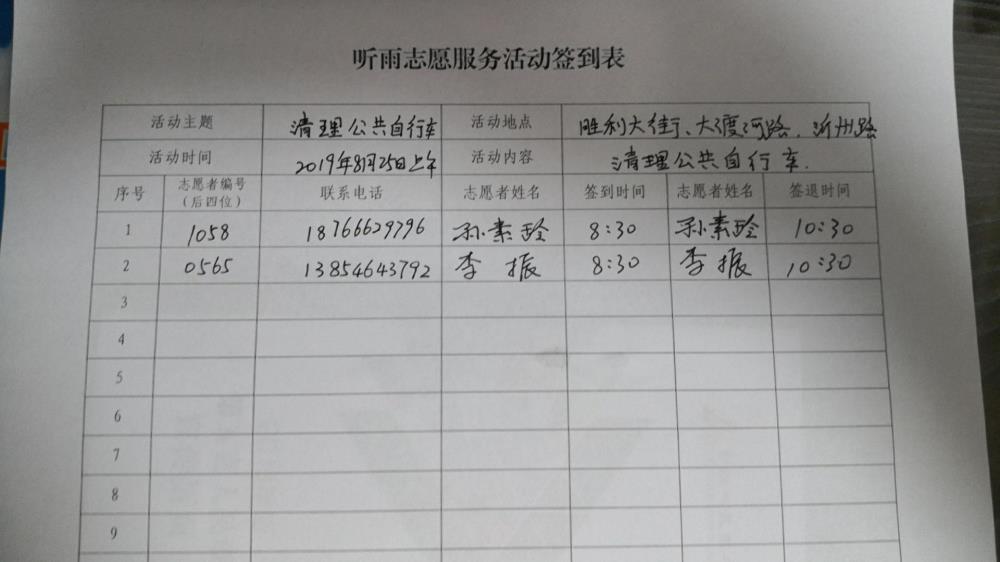 听雨志愿服务活动签到表
活动主题 清理公共自行车 活动地点 胜利大街、大渡河路、沂州路
活动时间 2019年8月25日上午 活动内容 清理公共自行车.
序号 志愿者编号（后四位） 联系电话 志愿者姓名 签到时间 志愿者姓名 签退时间
1 1058 18766629796 孙素玲 8:30 孙素玲 10:30
2 0565 13854643792 李振 8:30 李振 10:30
3
4
5
6
7
8
9